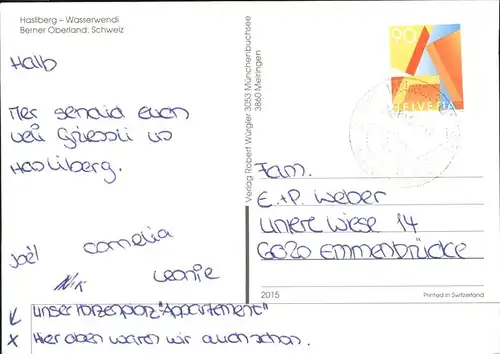 Hasliberg – Wasserwendi
Berner Oberland, Schweiz
Halb
Mer sendid Euch
veli Griessli us
Hasliberg.
Joël Cornelia
Nik Leonie
unser "Appartement"
x Hier oben waren wir auch schon.
Verlag Robert Würgler 3053 Münchenbuchsee
3860 Meiringen
90
HELVETIA
Fam.
E. + P. Weber
Untere Wiese 14
6020 Emmenbrücke
2015
Printed in Switzerland